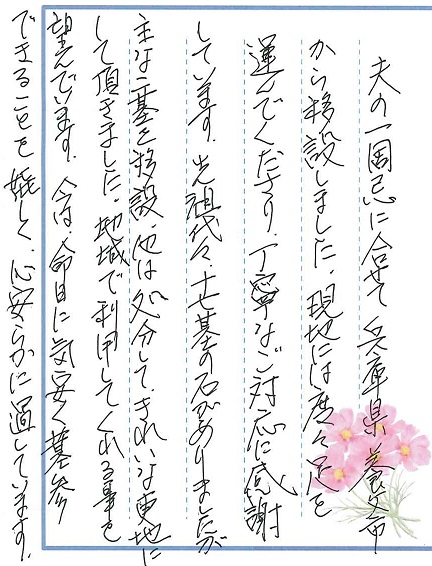 夫の一周忌に合せて兵庫県養父市
から移設しました。現地には度々足を
運んでくださり、丁寧なご対応に感謝
しています。先祖代々十七基の石がありましたが
主な二基を移設、他は処分して、きれいな更地に
して頂きました。地域で利用してくれる事を
望んでいます。今は、命日に気安く墓参
できることを嬉しく、心安らかに過しています。